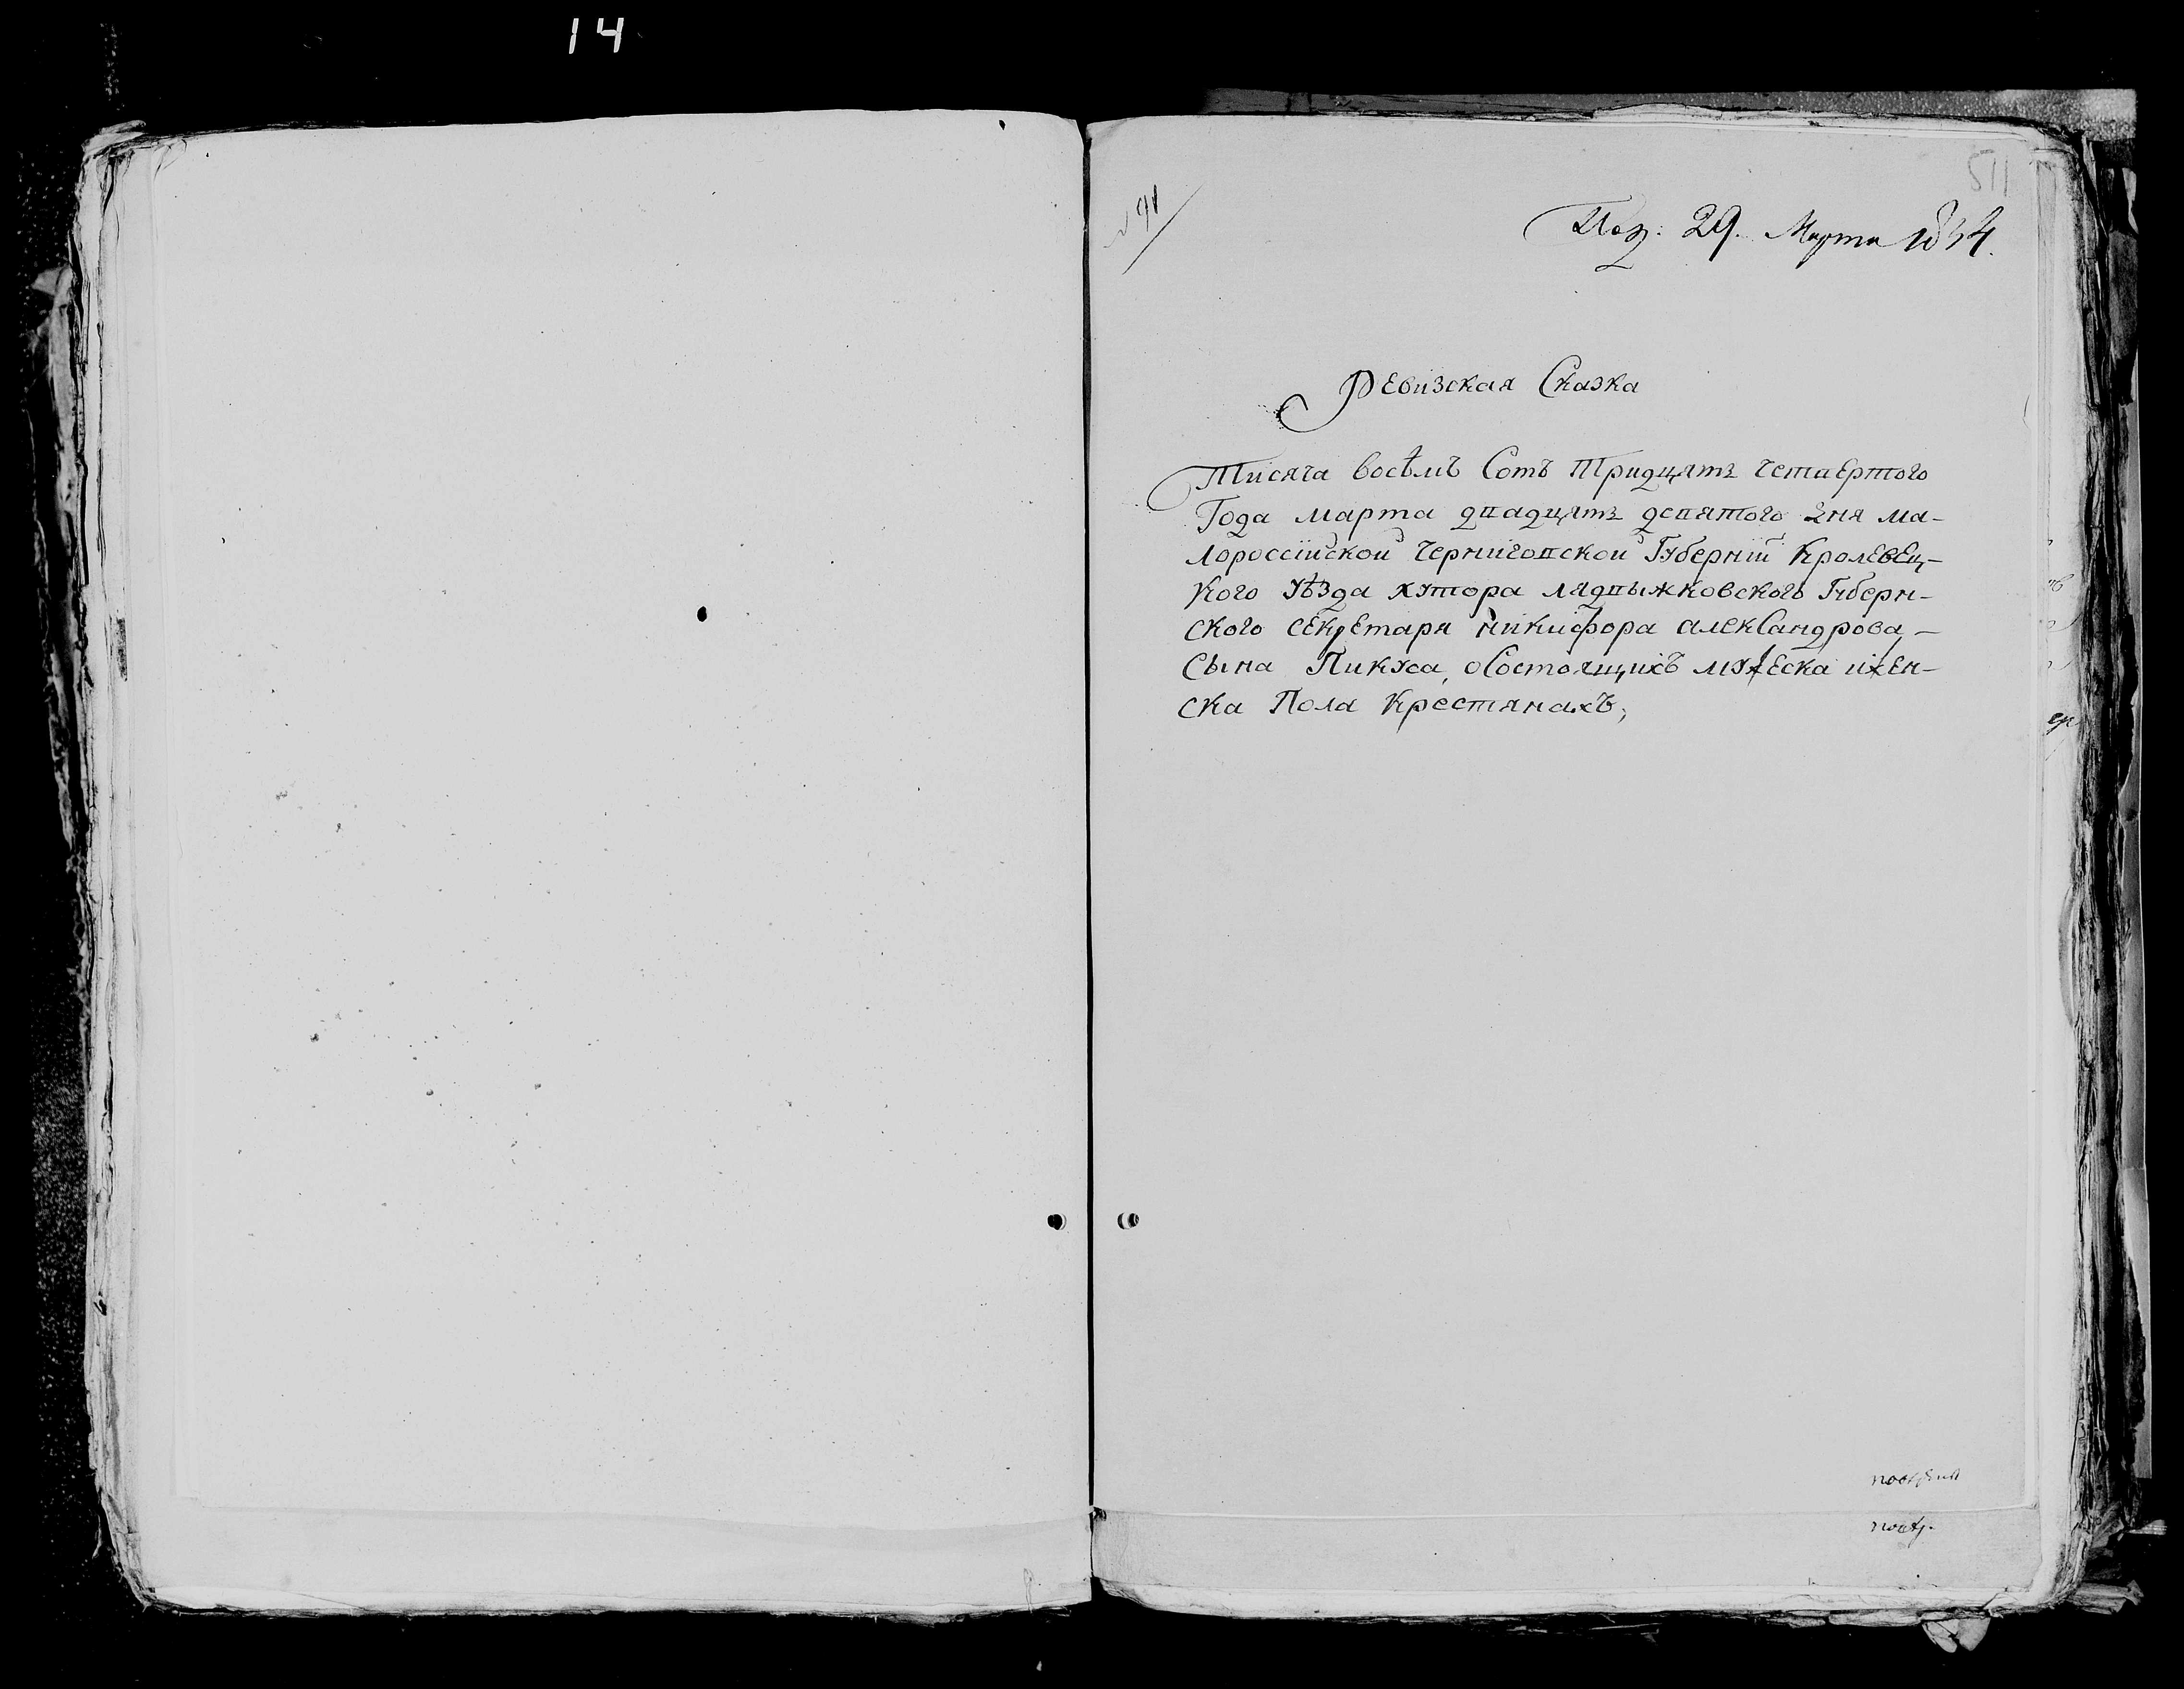 14
511
№ 91
Под: 29. Марта 1834.
Ревизская Сказка
Тисяча восѣмъ Сотъ Тридцять четвертого
Года марта двадцять девятого дня ма-
лороссїйской черниговской Губернїи Кролевец-
кого уѣзда хутора лядвыжковского Губерн-
ского секретаря никифора алекСандрова-
Сына Пикуса, оСостоящихъ мужеска ижен-
ска Пола Крестянахъ;